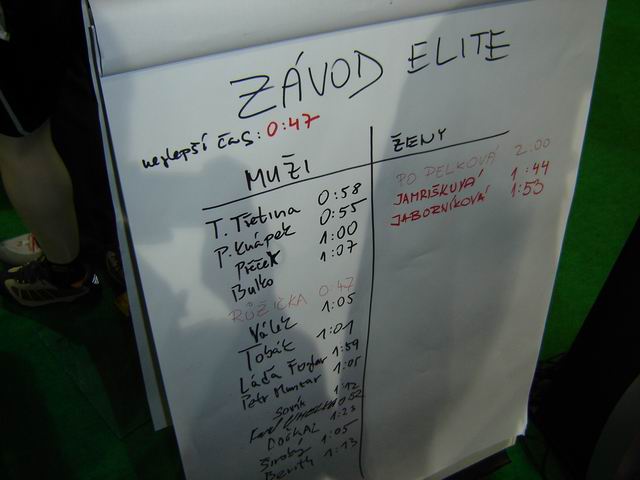 ZÁVOD ELITE
nejlepší čas: 0:47
MUŽI
T. Třetina 0:58
P. Knápek 0:55
Přeček 1:00
Bulko 1:07
RŮŽIČKA 0:47
Válek 1:05
Tobák 1:01
Láďa 1:59
Petr Muntar 1:05
Sovák 1:12
0:52
DOČKAL 1:23
Široký 1:05
1:13
ŽENY
PO PELKOVÁ 2:00
JAMRIŠKOVÁ 1:44
JABORNÍKOVÁ 1:53